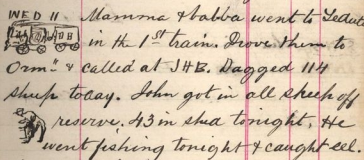 WED 11 Mamma & babba went to Leduc
in the 1st train. Drove them to
Orm" & called at JHB. Dagged 114
sheep today. John got in all sheep off
reserve. 43 in shed tonight. He
went fishing tonight & caught eel.